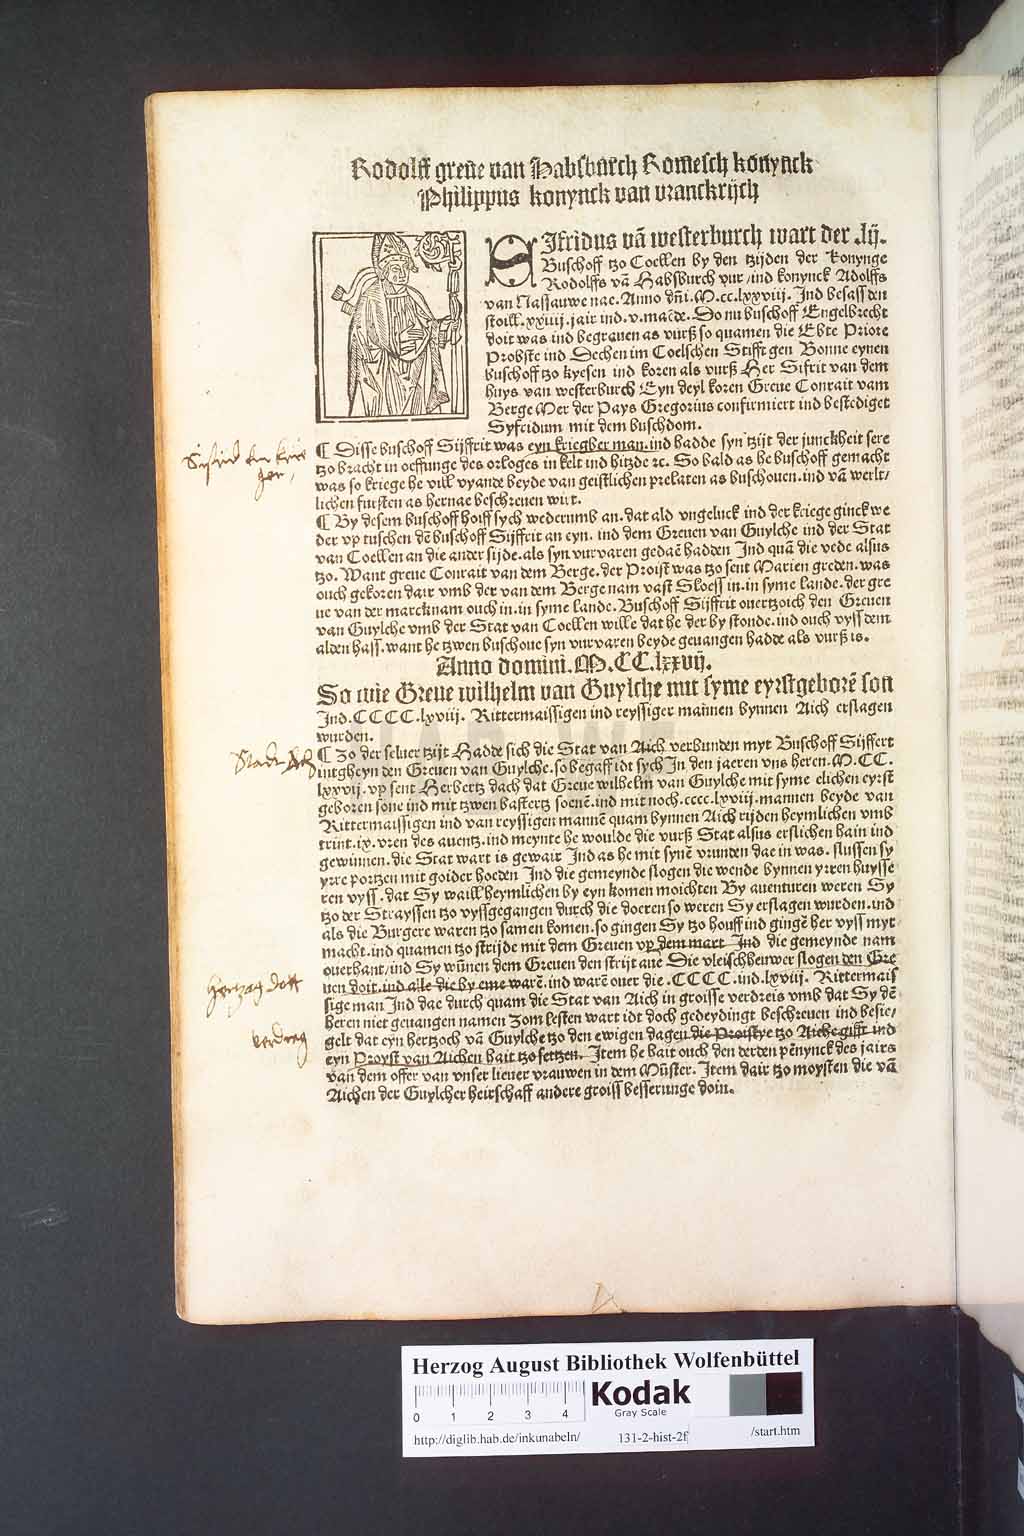 Rodolff greue van Habsburch Romesch konynck
Philippus konynck van vranckrijch
SIfridus vā westerburch wart der .lij.
Buschoff tzo Coellen by den tzijden der Konynge
Rodolffs vā Habsburch vur/ind konynck Adolffs
van Nassauwe nae. Anno dñi.M.cc.lxxviij. Ind besass den
stoill.xxiiij.jair ind.v.maēde. Do nu buschoff Engelbrecht
doit was ind begrauen as vurß so quamen die Ebte Priore
Probste ind Dechen im Coelschen Stifft gen Bonne eynen
buschoff tzo kyesen ind koren als vurß Her Sifrit van dem
huys van westerburch Eyn deyl koren Greue Conrait vam
Berge Mer der Pays Gregorius confirmiert ind bestediget
Syfridum mit dem buschdom.
¶ Disse buschoff Sijffrit was eyn kriegber man.ind hadde syn tzijt der junckheit sere
tzo bracht in oeffunge des orloges in kelt ind hitzde ꝛc. So bald as he buschoff gemacht
was so kriege he vill vyande beyde van geistlichen prelaten as buschouen.ind vā werlt/
lichen fursten as hernae beschreuen wirt.
¶ By desem buschoff hoiff sych wederumb an.dat ald vngeluck ind der kriege ginck we
der vp tuschen dē buschoff Sijffrit an eyn. ind dem Greuen van Guylche ind der Stat
van Coellen an die ander sijde.als syn vurvaren gedaē hadden Ind quā die vede alsus
tzo. Want greue Conrait van dem Berge.der Proist was tzo sent Marien greden.was
ouch gekoren dair vmb der van dem Berge nam vast Sloess in.in syme lande.der gre
ue van der marck nam ouch in.in syme lande. Buschoff Sijffrit ouertzoich den Greuen
van Guylche vmb der Stat van Coellen wille dat he der by stonde.ind ouch vyss dem
alden hass.want he tzwen buschoue syn vurvaren beyde geuangen hadde als vurß is.
Anno domini.M.CC.lxxvij.
So wie Greue wilhelm van Guylche mit syme eyrstgeborē son
Ind.CCCC.lxviij. Rittermaissigen ind reyssiger mannen bynnen Aich erslagen
wurden.
¶ Zo der seluer tzijt Hadde sich die Stat van Aich verbunden myt Buschoff Sijffert
intgheyn den Greuen van Guylche.so begaff idt sych In den jaeren vns heren.M.CC.
lxxvij.vp sent Herbertz dach dat Greue wilhelm van Guylche mit syme elichen eyrst
geboren sone ind mit tzwen bastertz soenē.ind mit noch.cccc.lxviij.mannen beyde van
Rittermaissigen ind van reyssigen mannē quam bynnen Aich rijden heymlichen vmb
trint.ix.vren des auentz.ind meynte he woulde die vurß Stat alsus erslichen hain ind
gewinnen.die Stat wart is gewair Ind as he mit synē vrunden dae in was. slussen sy
yrre portzen mit goider hoeden Ind die gemeynde slogen die wende bynnen yrren huysse
ren vyss.dat Sy waill heymlichen by eyn komen moichten By auenturen weren Sy
tzo der Strayssen tzo vyssgegangen durch die doeren so weren Sy erslagen wurden.ind
als die Burgere waren tzo samen komen.so gingen Sy tzo houff ind gingē her vyss myt
macht.ind quamen tzo strijde mit dem Greuen vp dem mart Ind die gemeynde nam
ouerhant/ind Sy wūnen dem Greuen den strijt aue Die vleischheuwer slogen den Gre
uen doit.ind alle die by eme warē.ind warē ouer die.CCCC.ind.lxviij. Rittermais
sige man Ind dae durch quam die Stat van Aich in groisse verdreis vmb dat Sy dē
heren niet geuangen namen Zom lesten wart idt doch gedeydingt beschreuen ind besie/
gelt dat eyn hertzoch vā Guylche tzo den ewigen dagen die Proistye tzo Aiche gifft ind
eyn Proyst van Aichen hait tzo setzen. Item he hait ouch den derden pēnynck des jairs
van dem offer van vnser lieuer vrauwen in dem Mūster. Item dair tzo moysten die vā
Aichen der Guylcher heirschaff andere groiss besserunge doin.
Sifrid ein krie
ger,
Stadt Ach
Hertzog dott
verdrag
Herzog August Bibliothek Wolfenbüttel
0 1 2 3 4
Kodak
Gray Scale
http://diglib.hab.de/inkunabeln/ 131-2-hist-2f /start.htm